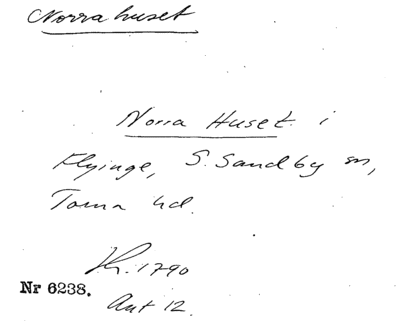 Norra huset
Norra Huset i
Flyinge, S. Sandby sn,
Torna hd.
Kr. 1790
Nr 6238.
Ant 12.